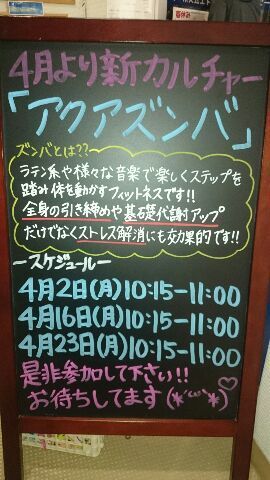 4月より新カルチャー
「アクアズンバ」
ズンバとは??
ラテン系や様々な音楽で楽しくステップを
踏み体を動かすフィットネスです!!
全身の引き締めや基礎代謝アップ
だけでなくストレス解消にも効果的です!!
ースケジュールー
4月2日(月)10:15-11:00
4月16日(月)10:15-11:00
4月23日(月)10:15-11:00
是非参加して下さい!!
お待ちしてます(*´ω`*)♡